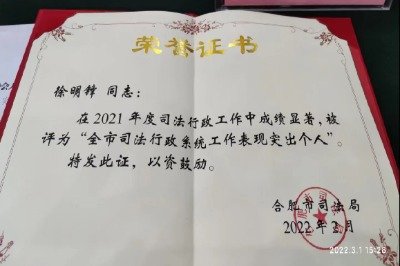 荣誉证书
徐明锋 同志：
在2021年度司法行政工作中成绩显著，被
评为“全市司法行政系统工作表现突出个人”。
特发此证，以资鼓励。
合肥市司法局
2022年2月
2022.3.1 15:28